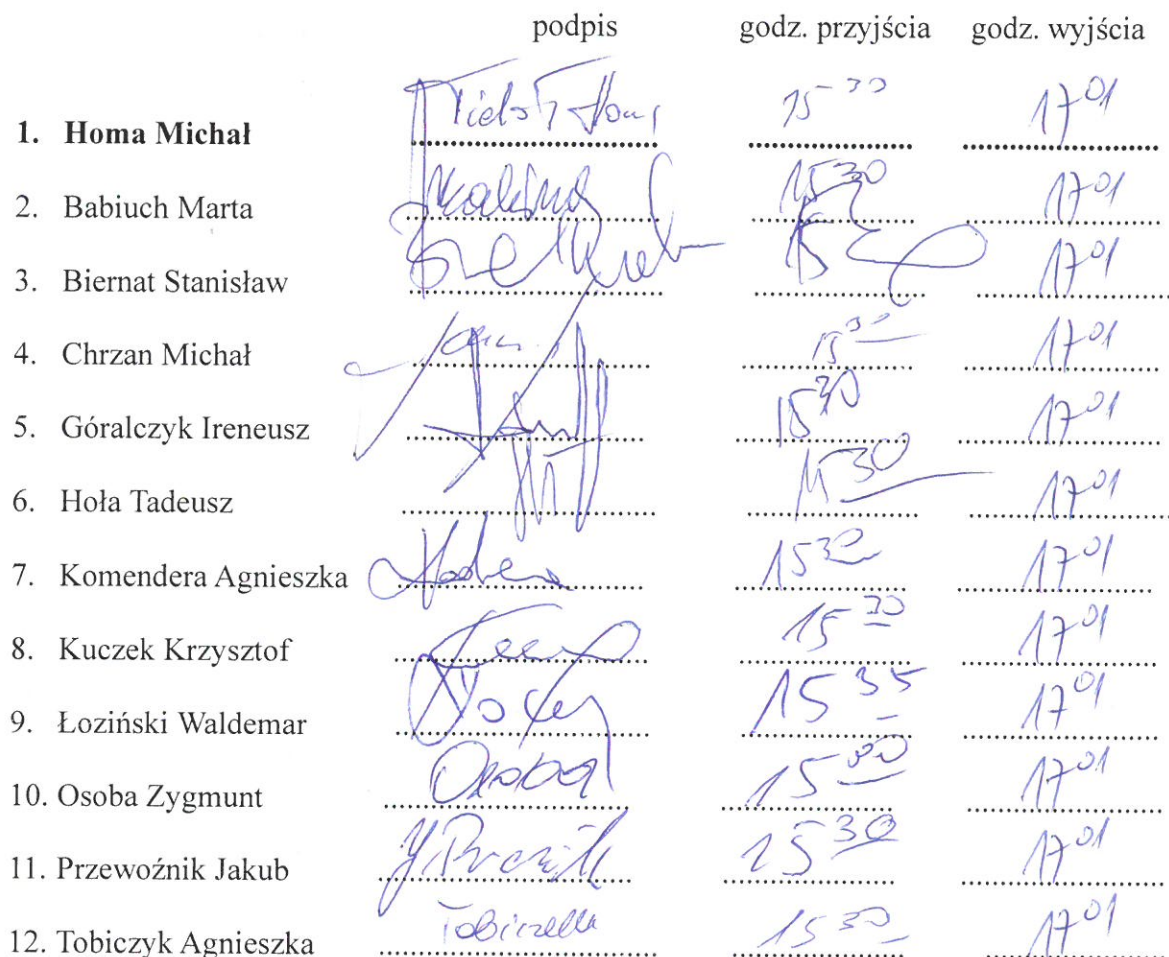 podpis godz. przyjścia godz. wyjścia
1. Homa Michał 15 30 17 01
2. Babiuch Marta 15 30 17 01
3. Biernat Stanisław 15 17 01
4. Chrzan Michał 15 30 17 01
5. Góralczyk Ireneusz 15 30 17 01
6. Hoła Tadeusz 15 30 17 01
7. Komendera Agnieszka 15 30 17 01
8. Kuczek Krzysztof 15 30 17 01
9. Łoziński Waldemar 15 35 17 01
10. Osoba Zygmunt Osoba 15 00 17 01
11. Przewoźnik Jakub 15 30 17 01
12. Tobiczyk Agnieszka 15 30 17 01